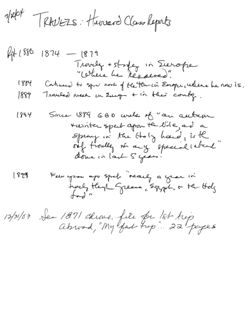 7/25/04
TRAVELS: Harvard Class Reports
Rpt 1880 1874 — 1879
Travels + study in Europe
"Where he
1884 Continued to spend most of the time in Europe, where he now is.
1889 Traveled much in Europe + in this country.
1894 Since 1889 GBD writes of "an autumn
+ winter spent upon the Nile, and a
spring in the Holy Land, is the
only travelling of any special interest"
done in last 5 years.
1899 Few years ago spent "nearly a year in
travel through Greece, Egypt, + the Holy
Land"
12/3/07 See 1871 chron. file for 1st trip
abroad, "My first trip". 22 pages